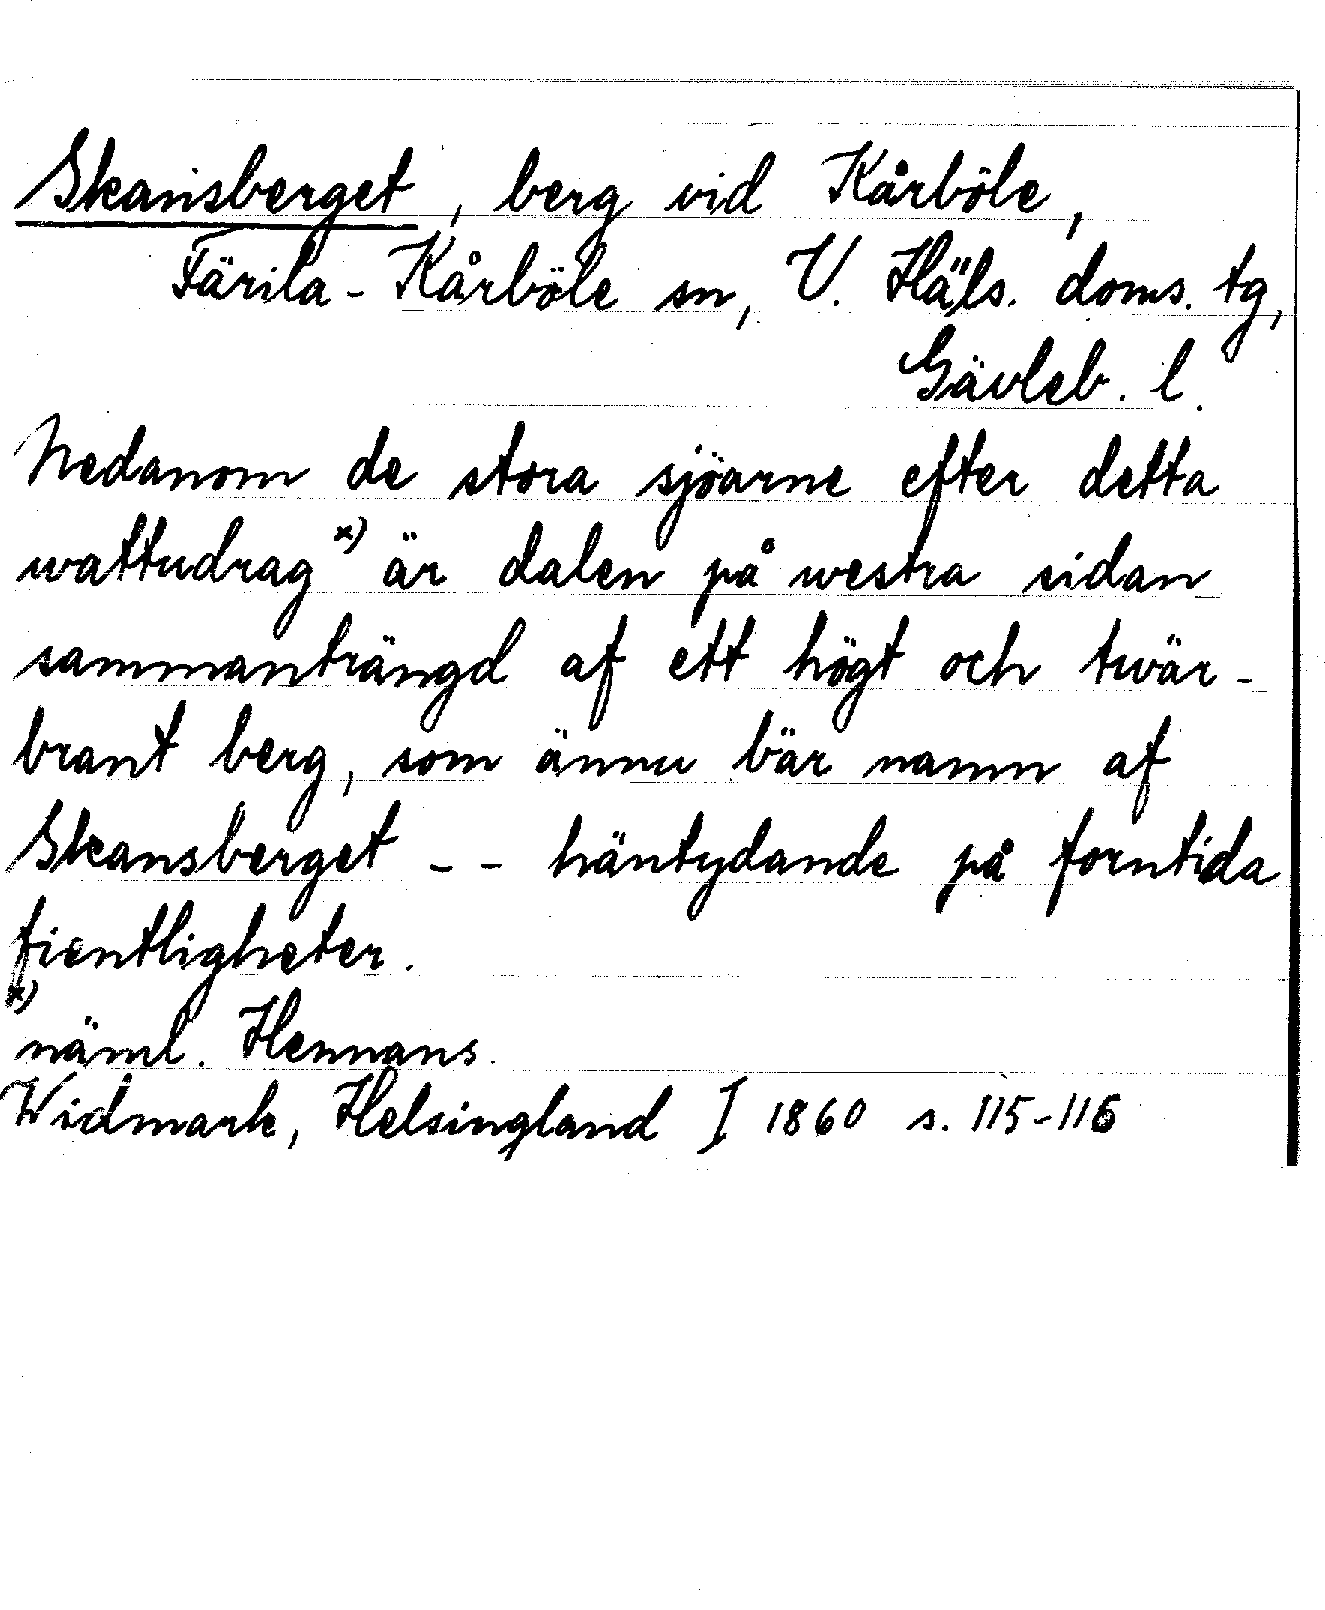 Skansberget, berg vid Kårböle,
Färila-Kårböle sn, V. Häls. doms. tg,
Gävleb. l.
Nedanom de stora sjöarne efter detta
wattudrag x) är dalen på westra sidan
sammanträngd af ett högt och twär-
brant berg, som ännu bär namn af
Skansberget -- häntydande på forntida
fientligheter.
x)
näml. Hennans.
Widmark, Helsingland I 1860 s. 115-116